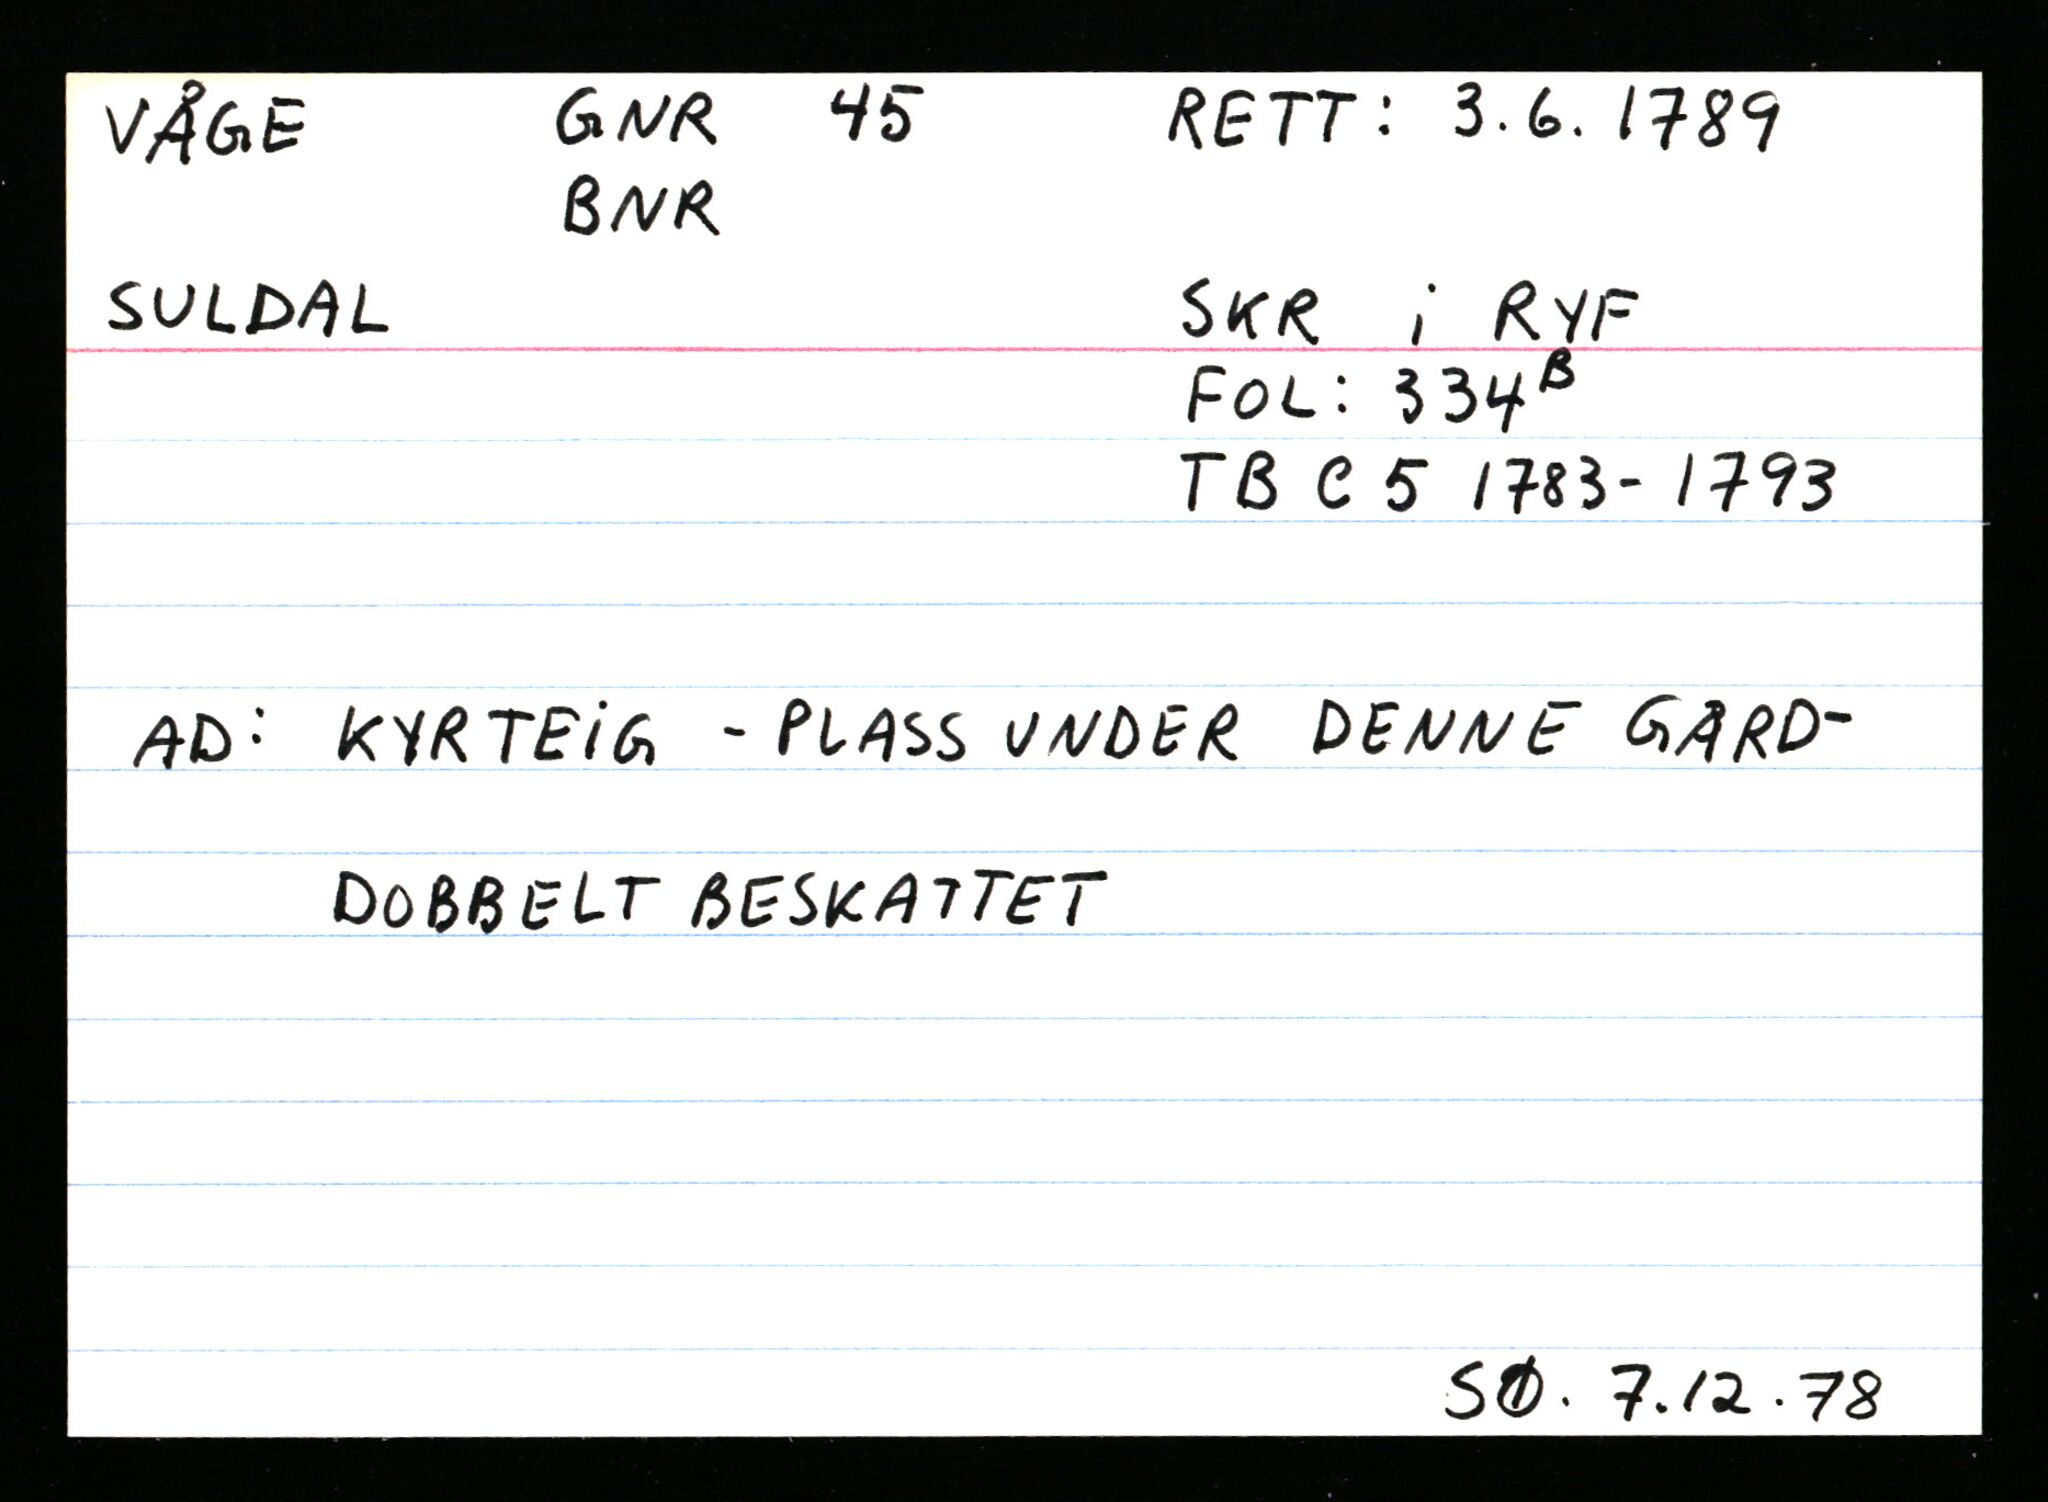 VÅGE GNR 45 RETT: 3.6.1789
BNR
SULDAL SKR i RYF
FOL: 334B
TB C 5 1783-1793
AD: KYRTEIG - PLASS UNDER DENNE GARD-
DOBBELT BESKATTET
SØ. 7.12.78